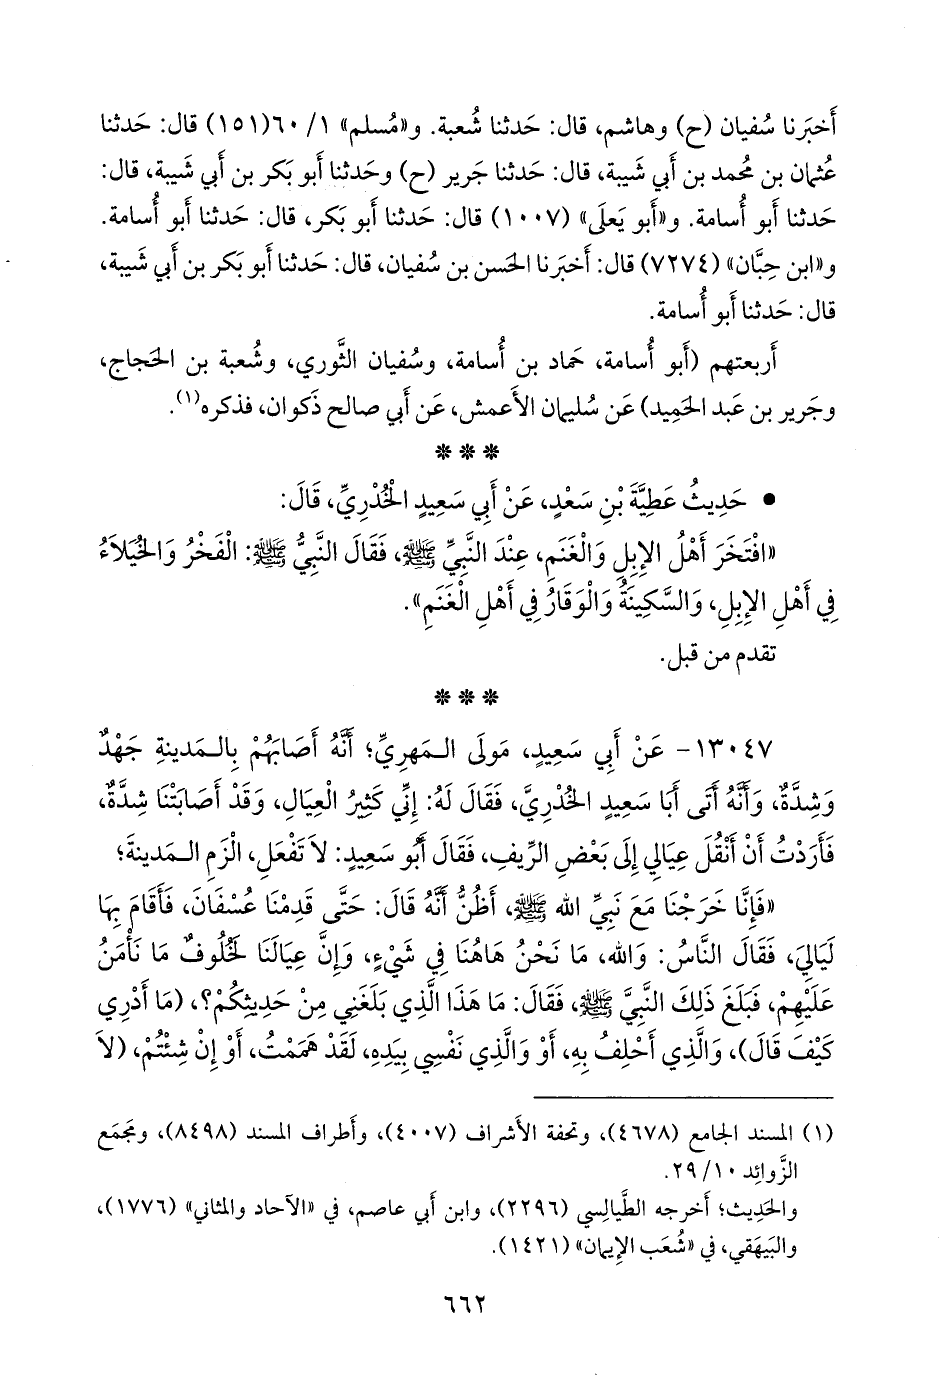 أَخبَرنا سُفيان (ح) وهاشم، قال: حَدثنا شُعبة. و«مُسلم» ١/ ٦٠(١٥١) قال: حَدثنا
عُثمان بن مُحمد بن أَبي شَيبة، قال: حَدثنا جَرير (ح) وحَدثنا أَبو بَكر بن أَبي شَيبة، قال:
حَدثنا أَبو أُسامة. و«أَبو يَعلَى» (١٠٠٧) قال: حَدثنا أَبو بَكر، قال: حَدثنا أَبو أُسامة.
و«ابن حِبَّان» (٧٢٧٤) قال: أَخبَرنا الحَسن بن سُفيان، قال: حَدثنا أَبو بَكر بن أَبي شَيبة،
قال: حَدثنا أَبو أُسامة.
أَربعتهم (أَبو أُسامة، حَماد بن أُسامة، وسُفيان الثَّوري، وشُعبة بن الحَجاج،
وجَرير بن عَبد الحَمِيد) عَن سُليمان الأَعمش، عَن أَبي صالح ذَكوان، فذكره(١).
* * *
• حَدِيثُ عَطِيَّةَ بْنِ سَعْدٍ، عَنْ أَبِي سَعِيدٍ الْخُدْرِيِّ، قَالَ:
«افْتَخَرَ أَهْلُ الإِبِلِ وَالْغَنَمِ، عِنْدَ النَّبِيِّ ﷺ، فَقَالَ النَّبِيُّ ﷺ: الْفَخْرُ وَالْخُيَلاَءُ
فِي أَهْلِ الإِبِلِ، وَالسَّكِينَةُ وَالْوَقَارُ فِي أَهْلِ الْغَنَمِ».
تقدم من قبل.
* * *
١٣٠٤٧- عَنْ أَبِي سَعِيدٍ، مَولَى الـمَهرِيِّ؛ أَنَّهُ أَصَابَهُمْ بِالـمَدينةِ جَهْدٌ
وَشِدَّةٌ، وَأَنَّهُ أَتَى أَبَا سَعِيدٍ الخُدْرِيَّ، فَقَالَ لَهُ: إِنِّي كَثِيرُ الْعِيَالِ، وَقَدْ أَصَابَتْنَا شِدَّةٌ،
فَأَرَدْتُ أَنْ أَنْقُلَ عِيَالِي إِلَى بَعْضِ الرِّيفِ، فَقَالَ أَبُو سَعِيدٍ: لاَ تَفْعَلِ، الْزَمِ الـمَدينةَ؛
«فَإِنَّا خَرَجْنَا مَعَ نَبِيِّ الله ﷺ، أَظُنُّ أَنَّهُ قَالَ: حَتَّى قَدِمْنَا عُسْفَانَ، فَأَقَامَ بِهَا
لَيَالِيَ، فَقَالَ النَّاسُ: وَالله، مَا نَحْنُ هَاهُنَا فِي شَيْءٍ، وَإِنَّ عِيَالَنَا لَخُلُوفٌ مَا نَأْمَنُ
عَلَيْهِمْ، فَبَلَغَ ذَلِكَ النَّبِيَّ ﷺ، فَقَالَ: مَا هَذَا الَّذِي بَلَغَنِي مِنْ حَدِيثِكُمْ؟، (مَا أَدْرِي
كَيْفَ قَالَ)، وَالَّذِي أَحْلِفُ بِهِ، أَوْ وَالَّذِي نَفْسِي بِيَدِهِ، لَقَدْ هَمَمْتُ، أَوْ إِنْ شِئْتُمْ، (لاَ
(١) المسند الجامع (٤٦٧٨)، وتحفة الأشراف (٤٠٠٧)، وأطراف المسند (٨٤٩٨)، ومَجمَع
الزَّوائِد ١٠/ ٢٩.
والحَدِيث؛ أخرجه الطَّيالِسي (٢٢٩٦)، وابن أَبي عاصم، في «الآحاد والمثاني» (١٧٧٦)،
والبَيهَقي، في «شُعَب الإِيمان» (١٤٢١).
٦٦٢